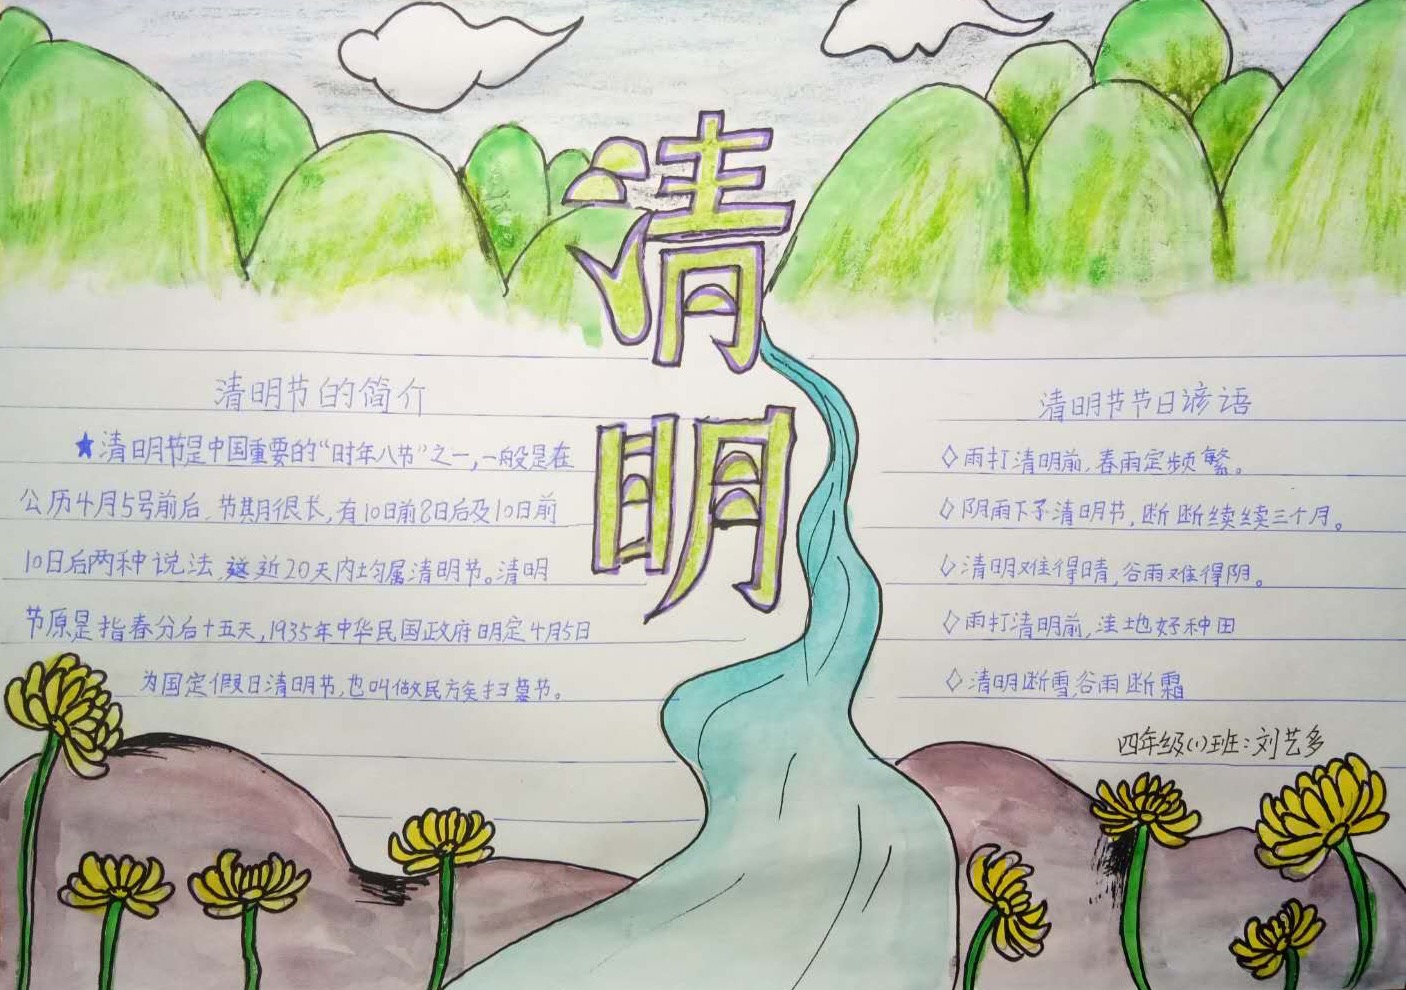 清明
清明节的简介
★清明节是中国重要的“时年八节”之一,一般是在
公历4月5号前后,节期很长,有10日前8日后及10日前
10日后两种说法,这近20天内均属清明节。清明
节原是指春分后十五天,1935年中华民国政府明定4月5日
为国定假日清明节,也叫做民族扫墓节。
清明节节日谚语
◇雨打清明前,春雨定频繁。
◇阴雨下了清明节,断断续续三个月。
◇清明难得晴,谷雨难得阴。
◇雨打清明前,洼地好种田
◇清明断雪谷雨断霜
四年级(1)班:刘艺多